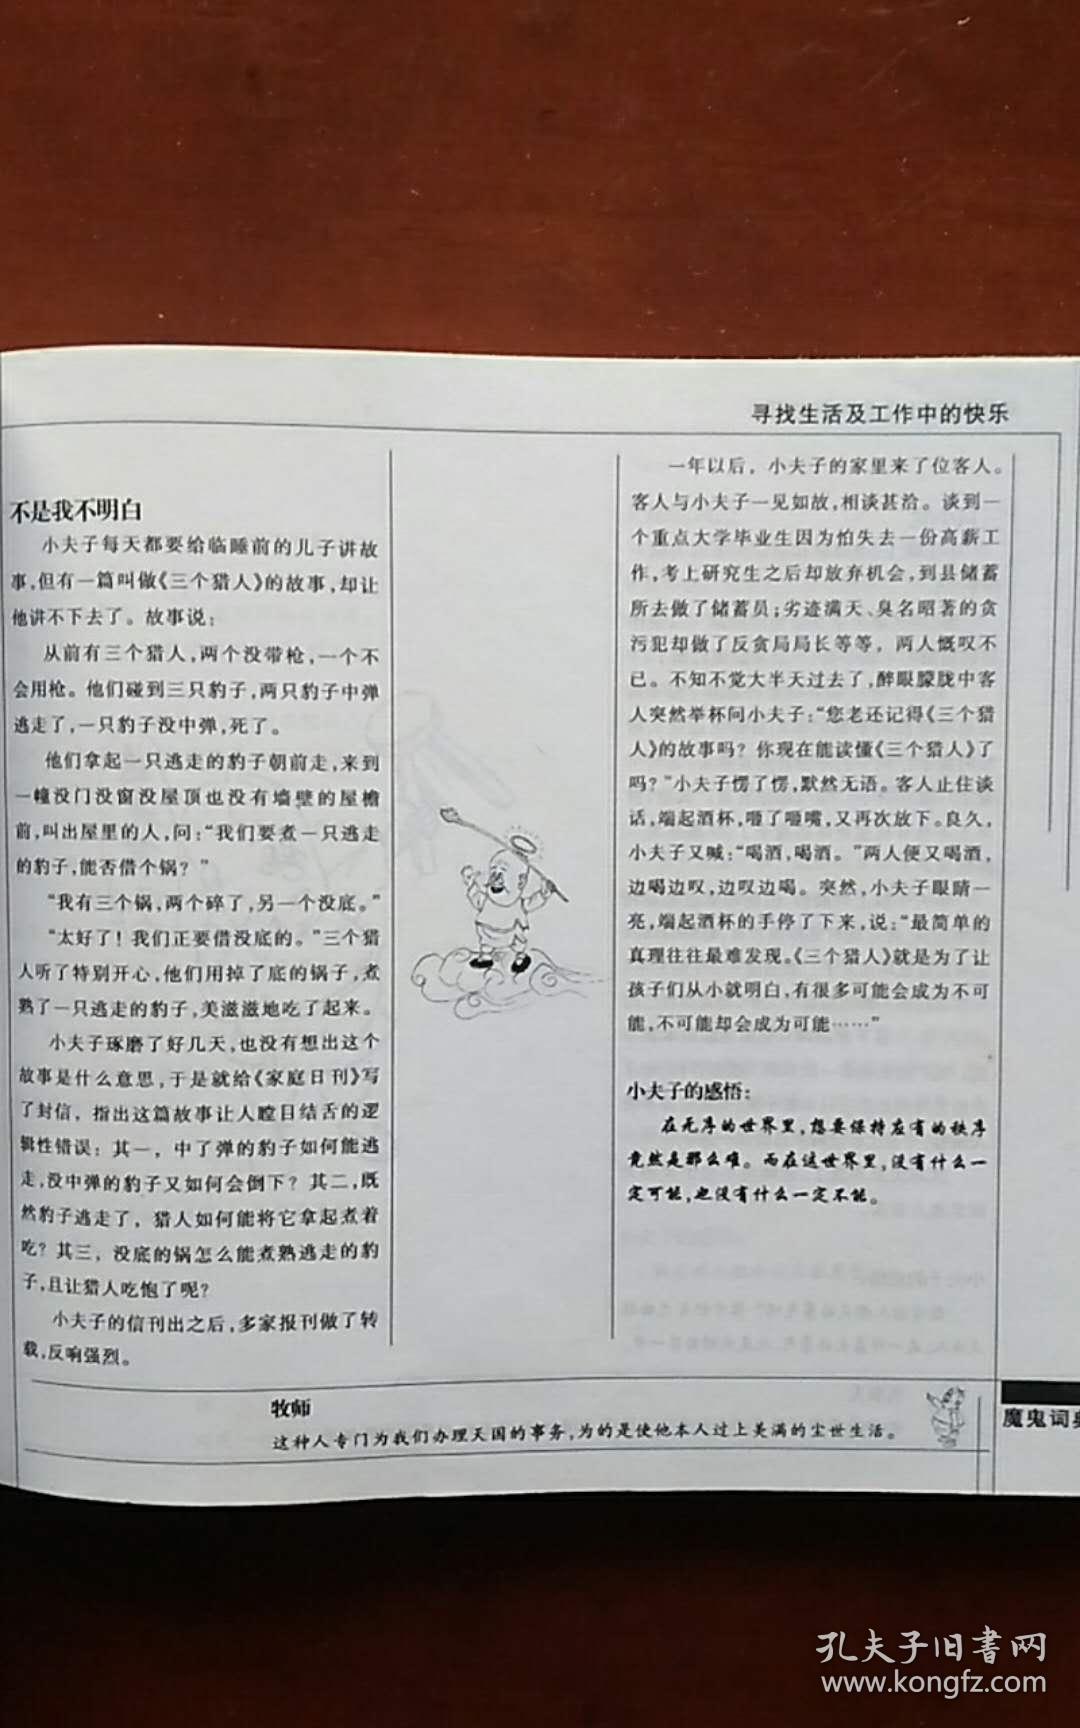 寻找生活及工作中的快乐
不是我不明白
小夫子每天都要给临睡前的儿子讲故
事,但有一篇叫做《三个猎人》的故事,却让
他讲不下去了。故事说:
从前有三个猎人,两个没带枪,一个不
会用枪。他们碰到三只豹子,两只豹子中弹
逃走了,一只豹子没中弹,死了。
他们拿起一只逃走的豹子朝前走,来到
一幢没门没窗没屋顶也没有墙壁的屋檐
前,叫出屋里的人,问:“我们要煮一只逃走
的豹子,能否借个锅?”
“我有三个锅,两个碎了,另一个没底。”
“太好了!我们正要借没底的。”三个猎
人听了特别开心,他们用掉了底的锅子,煮
熟了一只逃走的豹子,美滋滋地吃了起来。
小夫子琢磨了好几天,也没有想出这个
故事是什么意思,于是就给《家庭日刊》写
了封信,指出这篇故事让人瞠目结舌的逻
辑性错误:其一,中了弹的豹子如何能逃
走,没中弹的豹子又如何会倒下?其二,既
然豹子逃走了,猎人如何能将它拿起煮着
吃?其三,没底的锅怎么能煮熟逃走的豹
子,且让猎人吃饱了呢?
小夫子的信刊出之后,多家报刊做了转
载,反响强烈。
一年以后,小夫子的家里来了位客人。
客人与小夫子一见如故,相谈甚洽。谈到一
个重点大学毕业生因为怕失去一份高薪工
作,考上研究生之后却放弃机会,到县储蓄
所去做了储蓄员;劣迹满天、臭名昭著的贪
污犯却做了反贪局局长等等,两人慨叹不
已。不知不觉大半天过去了,醉眼朦胧中客
人突然举杯问小夫子:“您老还记得《三个猎
人》的故事吗?你现在能读懂《三个猎人》了
吗?”小夫子愣了愣,默然无语。客人止住谈
话,端起酒杯,咂了咂嘴,又再次放下。良久,
小夫子又喊:“喝酒,喝酒。”两人便又喝酒,
边喝边叹,边叹边喝。突然,小夫子眼睛一
亮,端起酒杯的手停了下来,说:“最简单的
真理往往最难发现。《三个猎人》就是为了让
孩子们从小就明白,有很多可能会成为不可
能,不可能却会成为可能……”
小夫子的感悟:
在无序的世界里,想要保持应有的秩序
竟然是那么难。而在这世界里,没有什么一
定可能,也没有什么一定不能。
牧师
这种人专门为我们办理天国的事务,为的是使他本人过上美满的尘世生活。
魔鬼词典
孔夫子旧书网
www.kongfz.com